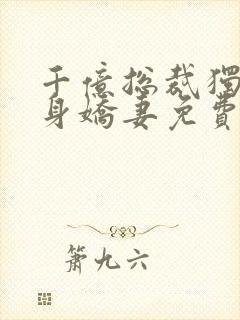 千億總裁獨
身嬌妻免費
簫九六